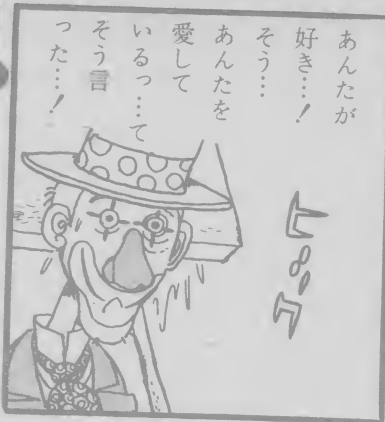 あんたが
好き…!
そう…
あんたを
愛して
いるっ…て
そう言
った…!
ドック